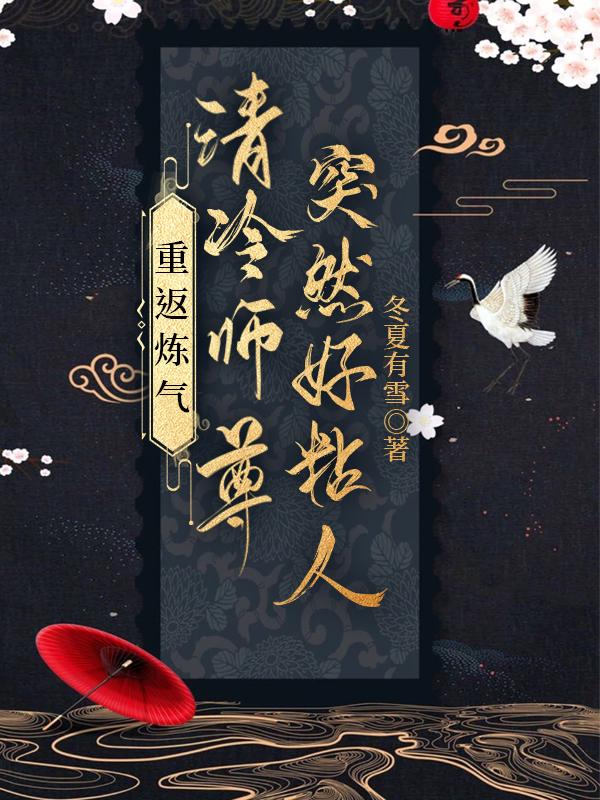 重返炼气
清冷师尊
突然好粘人
冬夏有雪◎著